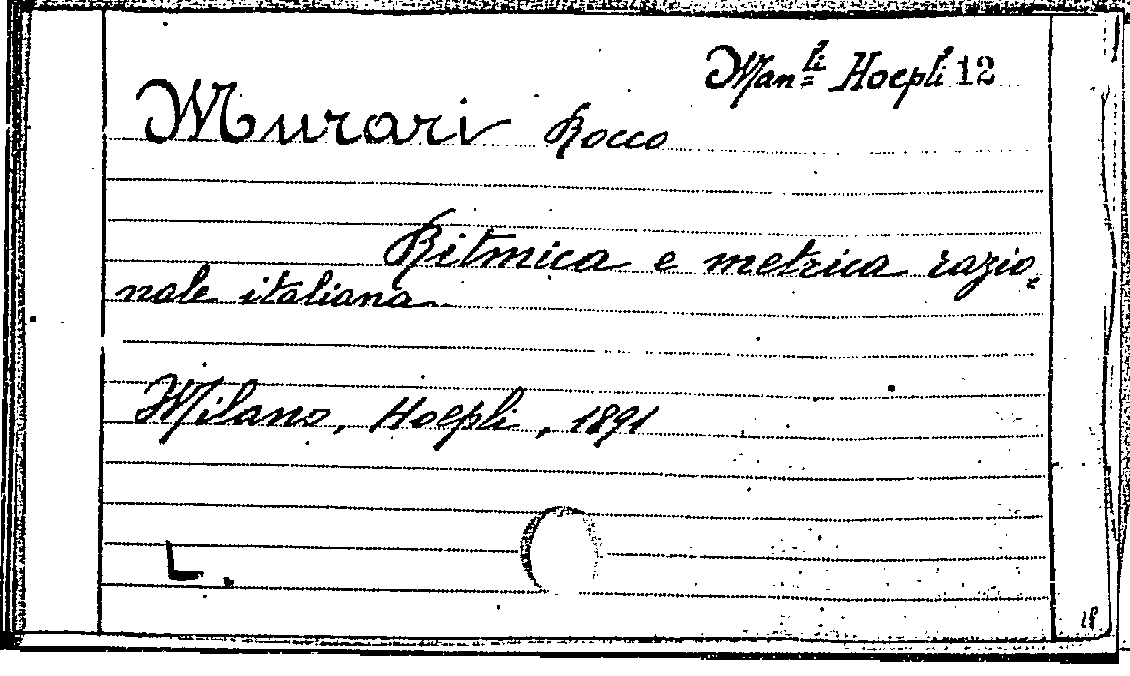 Man.li Hoepli 12
Murari Rocco
Ritmica e metrica razio=
nale italiana.
Milano, Hoepli, 1891
L.
18